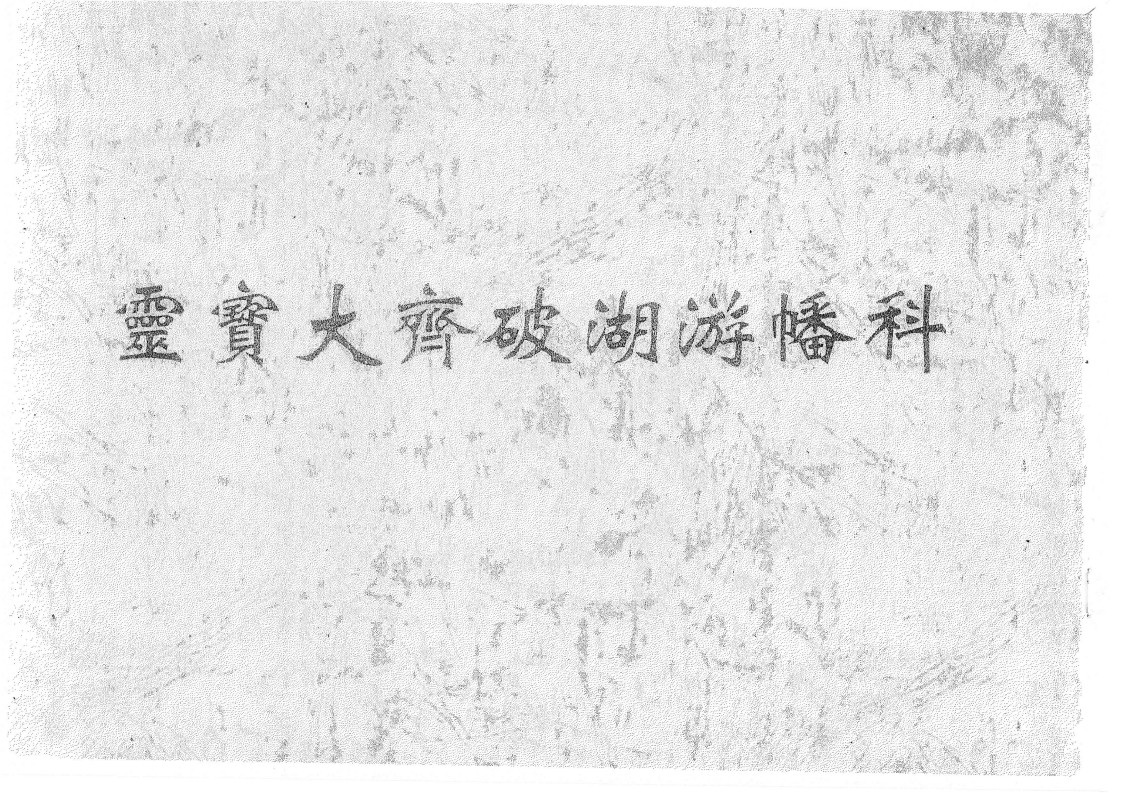 靈寶大齊破湖游幡科